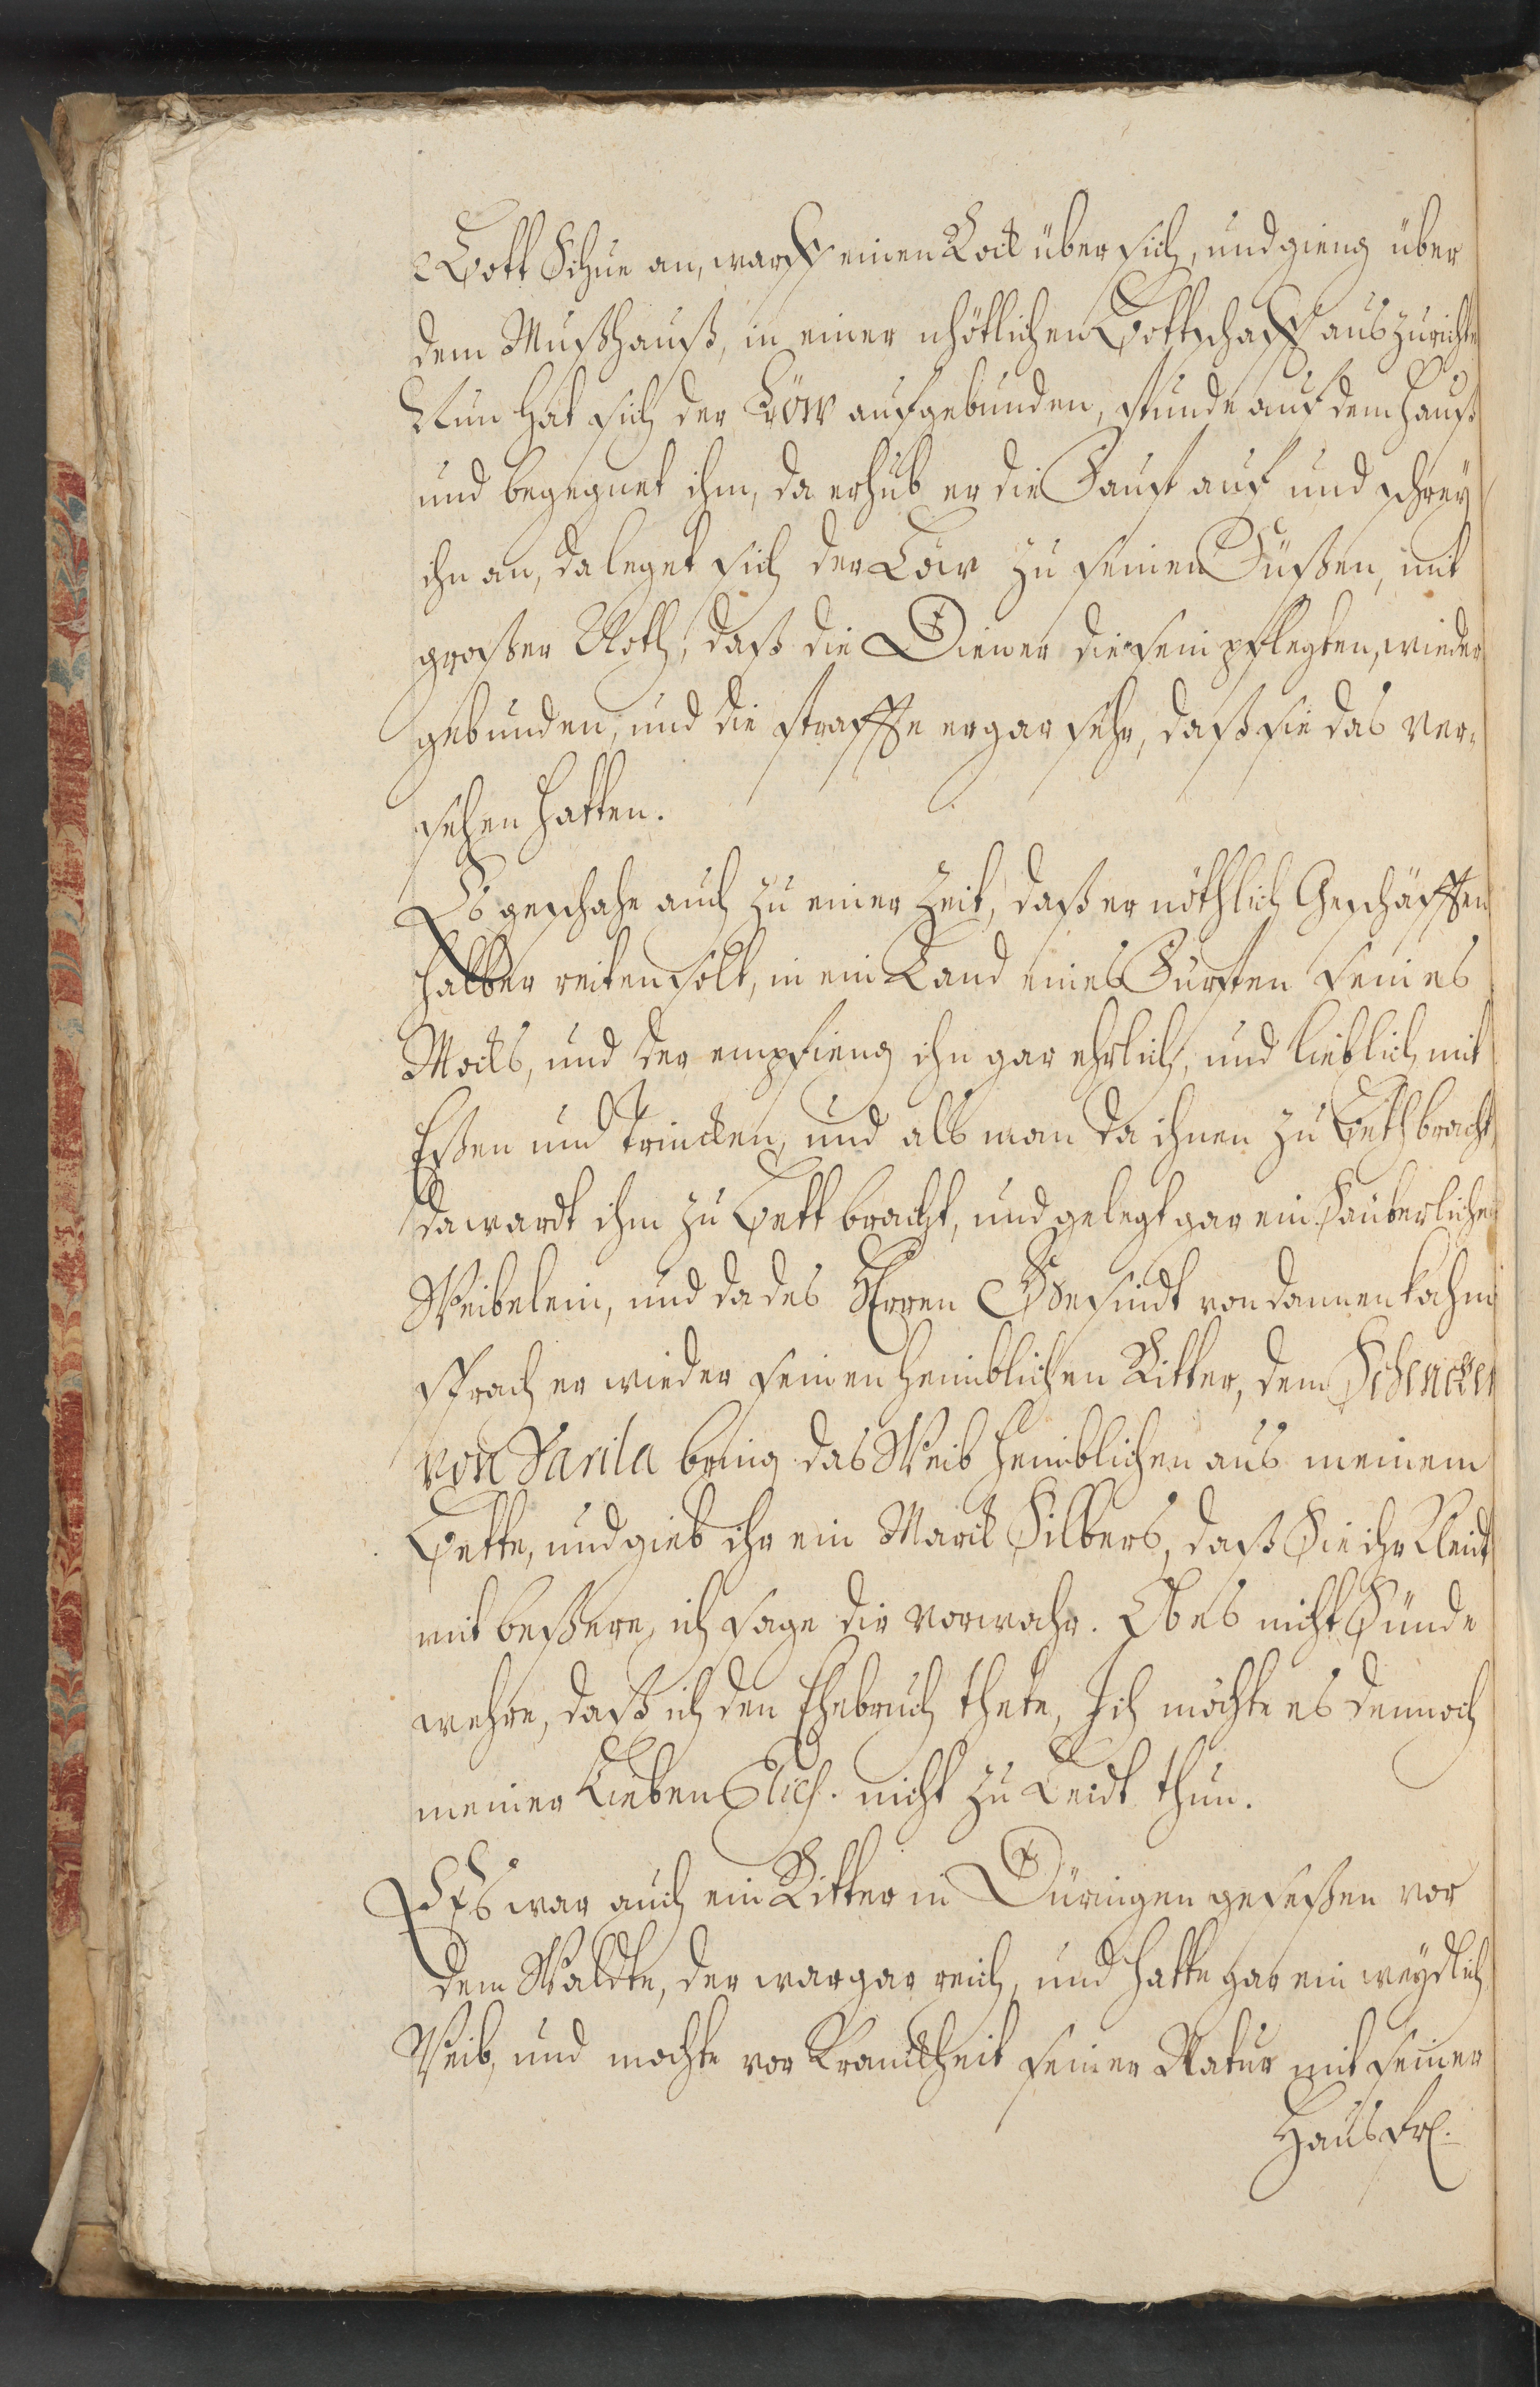 Bott Schue an, warff einen Rock über sich, und gieng über
dem Mußhauß, in einer nhötlichen Bottschafft auszurichte
Nun hat sich der Löw aufgebunden, stunde auf dem Hauß
und begegnet ihm, da erhub er die Faust auf und schrey
ihn an, da leget sich der Löw zu seinen Füßen, mit
großer Noth, daß die Diener die sein pflegten, wieder
gebunden, und die straffte er gar sehr, daß sie das ver-
sehen hatten.
Es geschahe auch zu einer Zeit, daß er nöthlich Geschäfften
halber reiten solt, in ein Land eines Fürsten seines
Mocks, und der empfieng ihn gar ehrlich, und lieblich mit
Eßen und Trincken, und als man da ihnen zu Beth bracht,
da wardt ihm zu Bett bracht, und gelegt gar ein säuberliches
Weibelein, und da des Herren Gesindt von dannen kahm
sprach er wieder seinen heimblichen Ritter, dem Schencken
von Varila bring das Weib heimblichen aus meinem
Bette, und gieb ihr ein Marck Silbers, daß Sie ihr Kleidt
mit beßere, ich sage dir vorwahr. Ob es nicht Sünde
wehre, daß ich den Ehebruch thete, Ich möchte es dennoch
meiner Lieben Elis. nicht zu Leidt thun.
Es war auch ein Ritter in Düringen geseßen vor
dem Waldte, der war gar reich, und hatte gar ein weydlich
Weib, und mochte vor Kranckheit seiner Natur mit seiner
Hausfr.